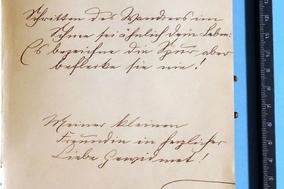 Schritten des Wanders im
Schnee sei ähnlich dein Leben:
Es bezeichne die Spur aber
beflecke sie nie!
Meiner kleinen
Freundin in herzlicher
Liebe gewidmet!